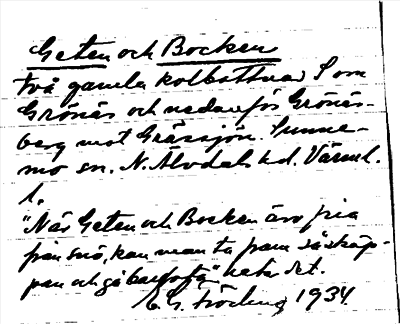 Geten och Bocken
två gamla kolbottnar S om
Grönäs och nedanför Grönäs-
berg mot Gråssjön. Sunne-
mo sn. N. Älvdals hd. Värml.
l.
"När Geten och Bocken äro fria
från snö, kan man ta fram såskäp-
pan och gå barfota", heter det.
E. G. Fröding 1934